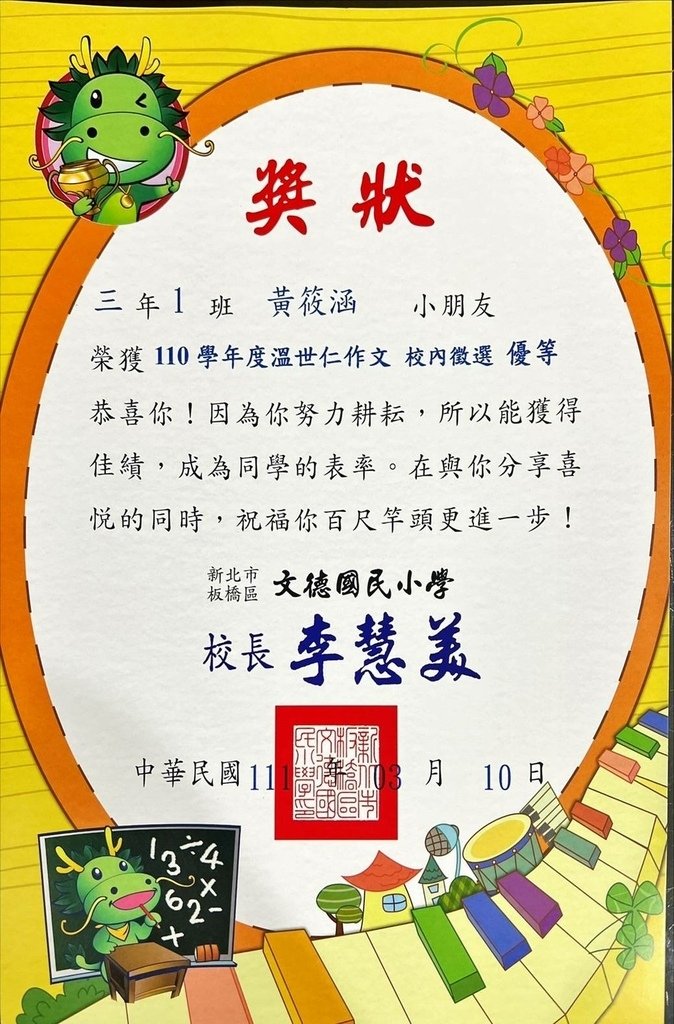 獎狀
三年1班 黃筱涵 小朋友
榮獲 110學年度溫世仁作文 校內徵選 優等
恭喜你！因為你努力耕耘，所以能獲得
佳績，成為同學的表率。在與你分享喜
悅的同時，祝福你百尺竿頭更進一步！
新北市
板橋區 文德國民小學
校長 李慧美
新北市
板橋區
文德國
民小學印
中華民國111年03月10日
1 3 ÷ 4
6 2 × -
+